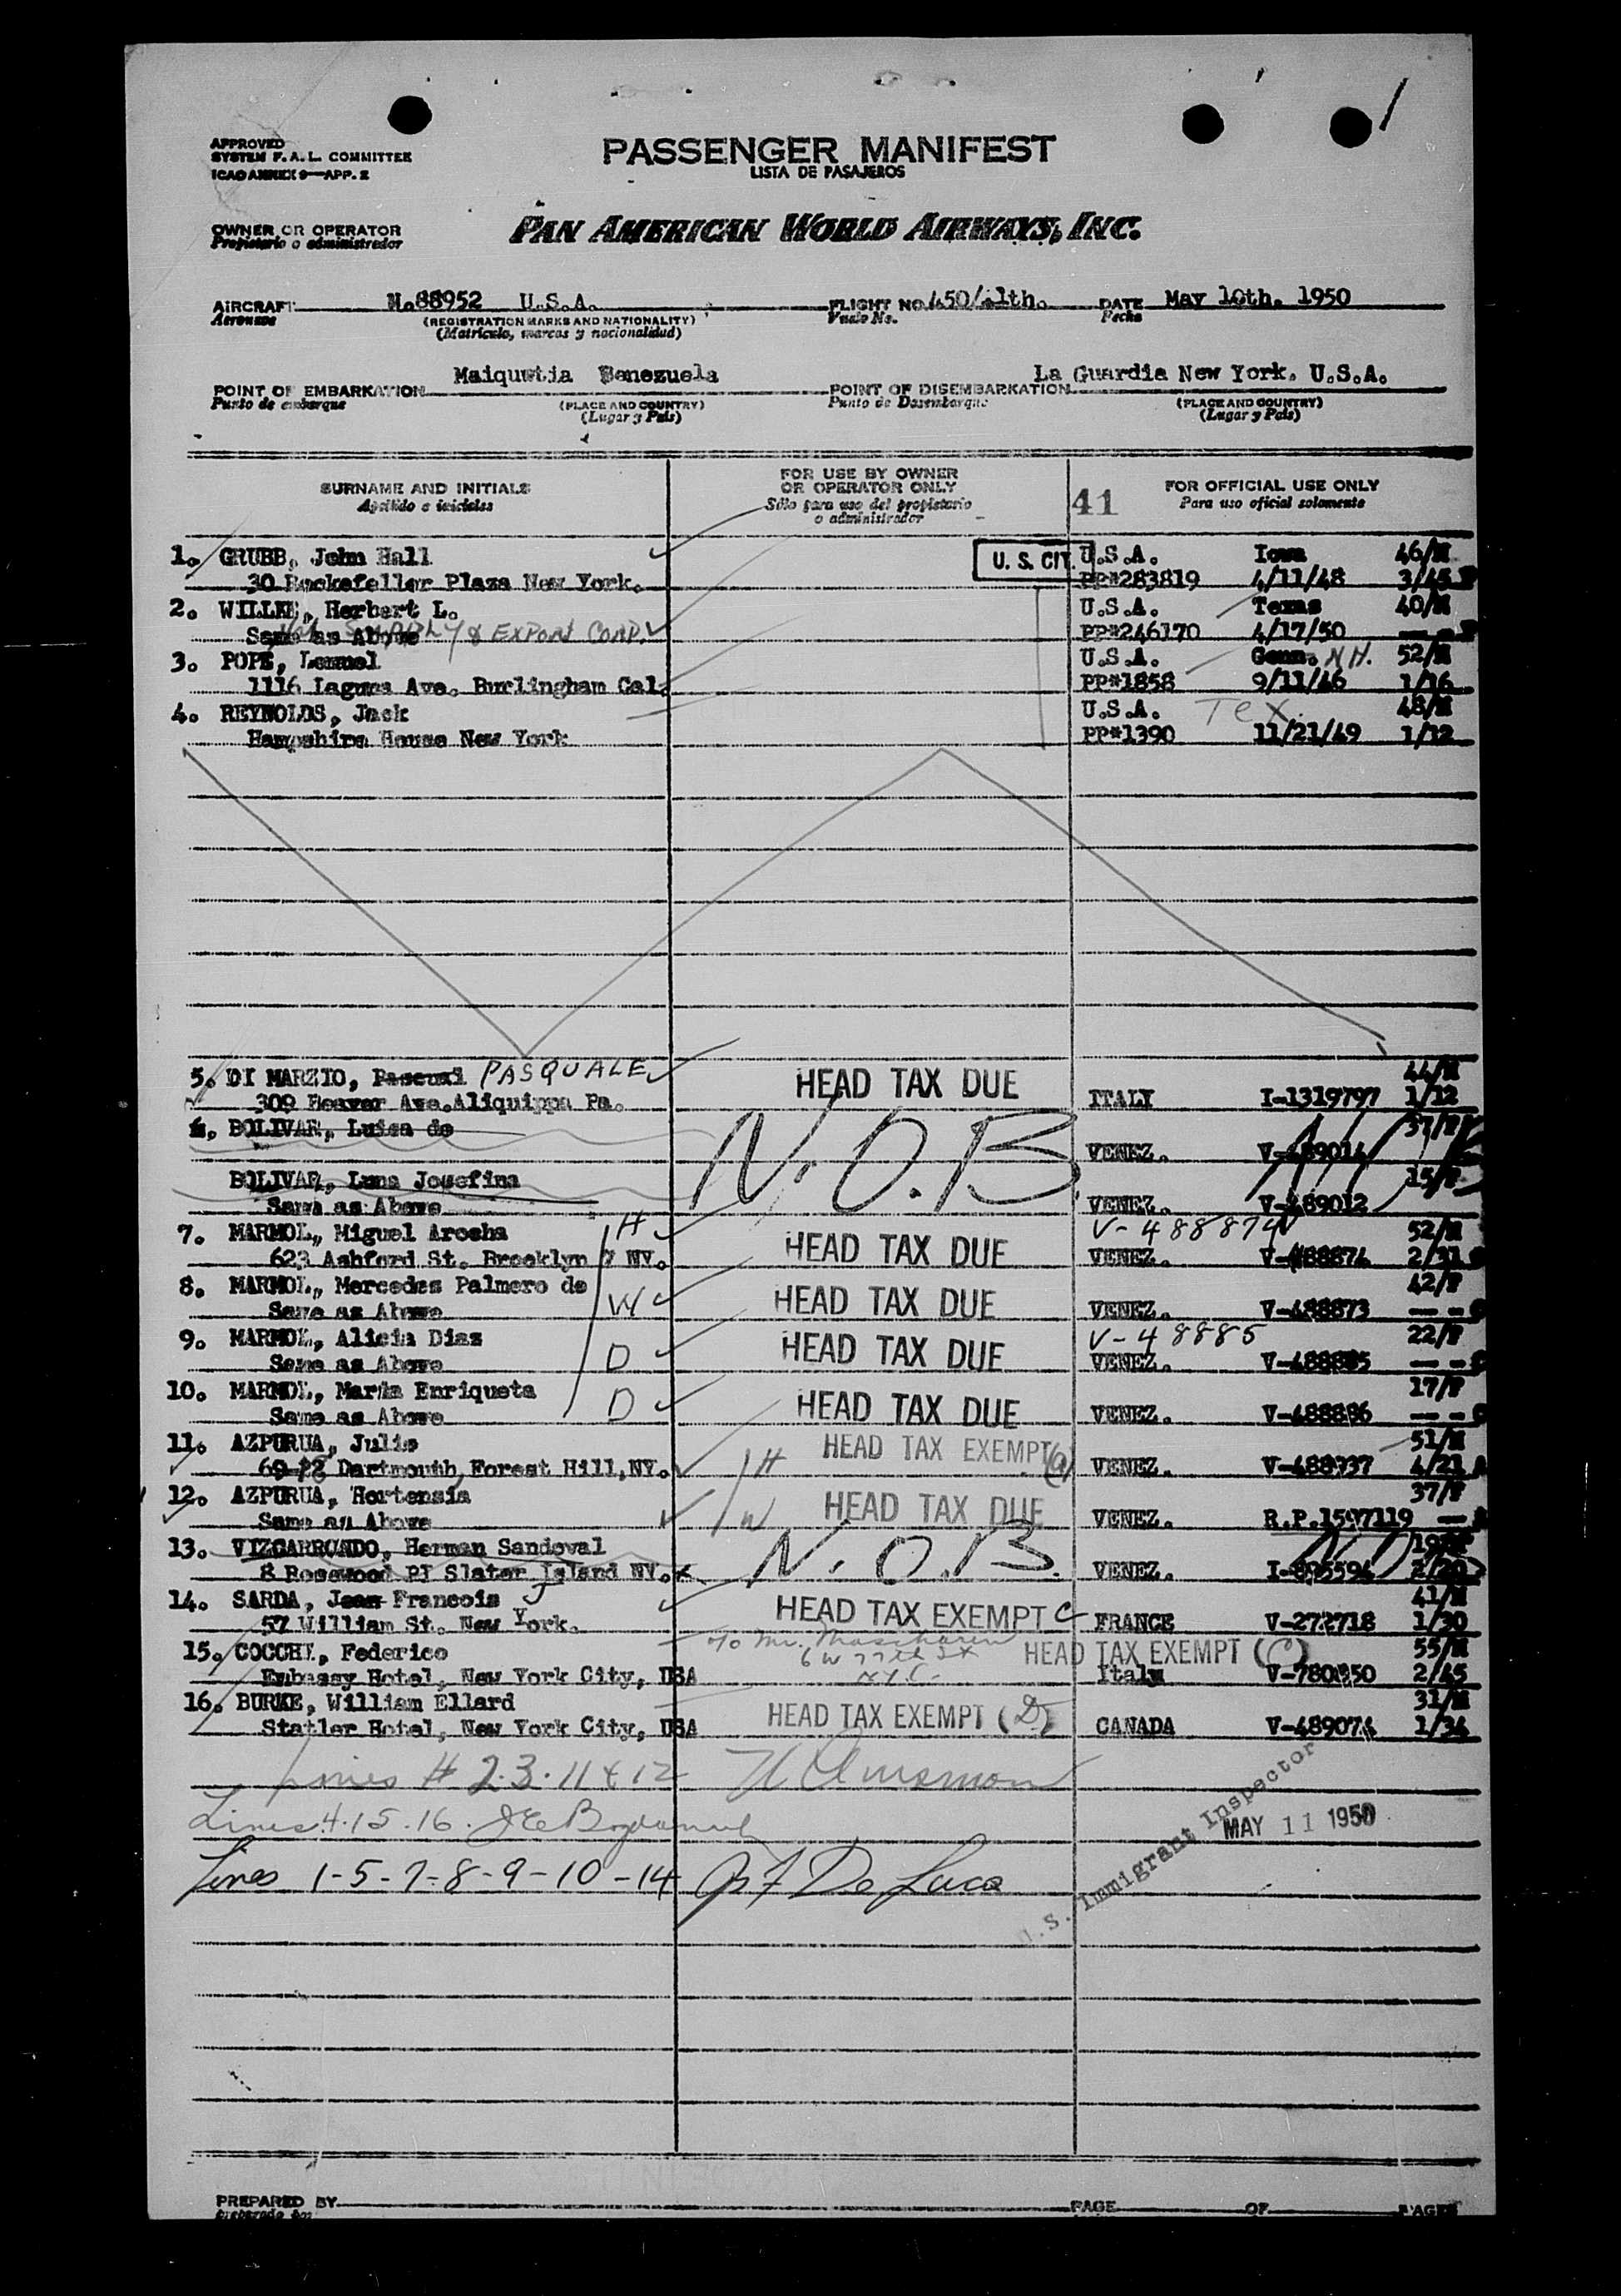 APPROVED
SYSTEM F. A. L. COMMITTEE
ICAO ANNEX 9—APP. 2
PASSENGER MANIFEST
LISTA DE PASAJEROS
OWNER OR OPERATOR
Propietario o administrador
PAN AMERICAN WORLD AIRWAYS, INC.
AIRCRAFT N.88952 U.S.A. FLIGHT NO. 450/11th. DATE May 10th. 1950
Aeronave (REGISTRATION MARKS AND NATIONALITY) Vuelo No. Fecha
(Matricula, marcas y nacionalidad)
POINT OF EMBARKATION Maiquetia Venezuela POINT OF DISEMBARKATION La Guardia New York. U.S.A.
Punto de embarque (PLACE AND COUNTRY) Punto de Desembarque (PLACE AND COUNTRY)
(Lugar y País) (Lugar y País)
SURNAME AND INITIALS
Apellido e iniciales
FOR USE BY OWNER
OR OPERATOR ONLY
Sólo para uso del propietario
o administrador
41
FOR OFFICIAL USE ONLY
Para uso oficial solamente
1. GRUBB, John Hall U. S. CIT. U.S.A. Iowa 46/M
30 Rockefeller Plaza New York. PP#283819 4/11/48 3/45
2. WILLKE, Herbert L. U.S.A. Texas 40/M
Same as Above SUPPLY & EXPORT CORP. PP#246170 4/17/50 — -
3. POPE, Lemuel U.S.A. Conn. N.H. 52/M
1116 Laguna Ave. Burlingham Cal. PP#1858 9/11/46 1/16
4. REYNOLDS, Jack U.S.A. Tex. 48/M
Hampshire House New York PP#1390 11/21/49 1/12
5. DI MARZIO, Pascual PASQUALE HEAD TAX DUE 44/M
309 Beaver Ave. Aliquippa Pa. ITALY I-1319797 1/12
6. BOLIVAR, Luisa de N.O.B. 37/F
VENEZ. V-489014
BOLIVAR, Luna Josefina 15/F
Same as Above VENEZ. V-489012
7. MARMOL, Miguel Arosha H HEAD TAX DUE V-488874 52/M
623 Ashford St. Brooklyn 7 NY. VENEZ. V-488874 2/31
8. MARMOL, Mercedes Palmero de HEAD TAX DUE 42/F
Same as Above W VENEZ. V-488873 — -
9. MARMOL, Alicia Dias HEAD TAX DUE V-48885 22/F
Same as Above D VENEZ. V-488885 — -
10. MARMOL, Maria Enriqueta HEAD TAX DUE 17/F
Same as Above D VENEZ. V-488886 — -
11. AZPURUA, Julio HEAD TAX EXEMPT (a) 51/M
Dartmouth, Forest Hill, NY. H VENEZ. V-488937 4/21
12. AZPURUA, Hortensia HEAD TAX DUE 37/F
Same as Above W VENEZ. R.P.1597119 —
13. VIZGARRONDO, Herman Sandoval N.O.B.
8 Rosewood Pl Slater Island NY. VENEZ. 2/20
14. SARDA, Jean Francois J HEAD TAX EXEMPT C 41/M
57 William St. New York. FRANCE V-272718 1/30
15. COCCHI, Federico c/o Mr. HEAD TAX EXEMPT (C) 55/M
Embassy Hotel, New York City, USA 6 W 77th St N.Y.C. Italy 2/45
16. BURKE, William Ellard HEAD TAX EXEMPT (D) 31/M
Statler Hotel, New York City, USA CANADA V-489074 1/34
Lines # 2.3.11 & 12
Lines 4.15.16.
Lines 1-5-7-8-9-10-14 De Luca
U.S. Immigrant Inspector
MAY 11 1950
PREPARED BY PAGE OF PAGES